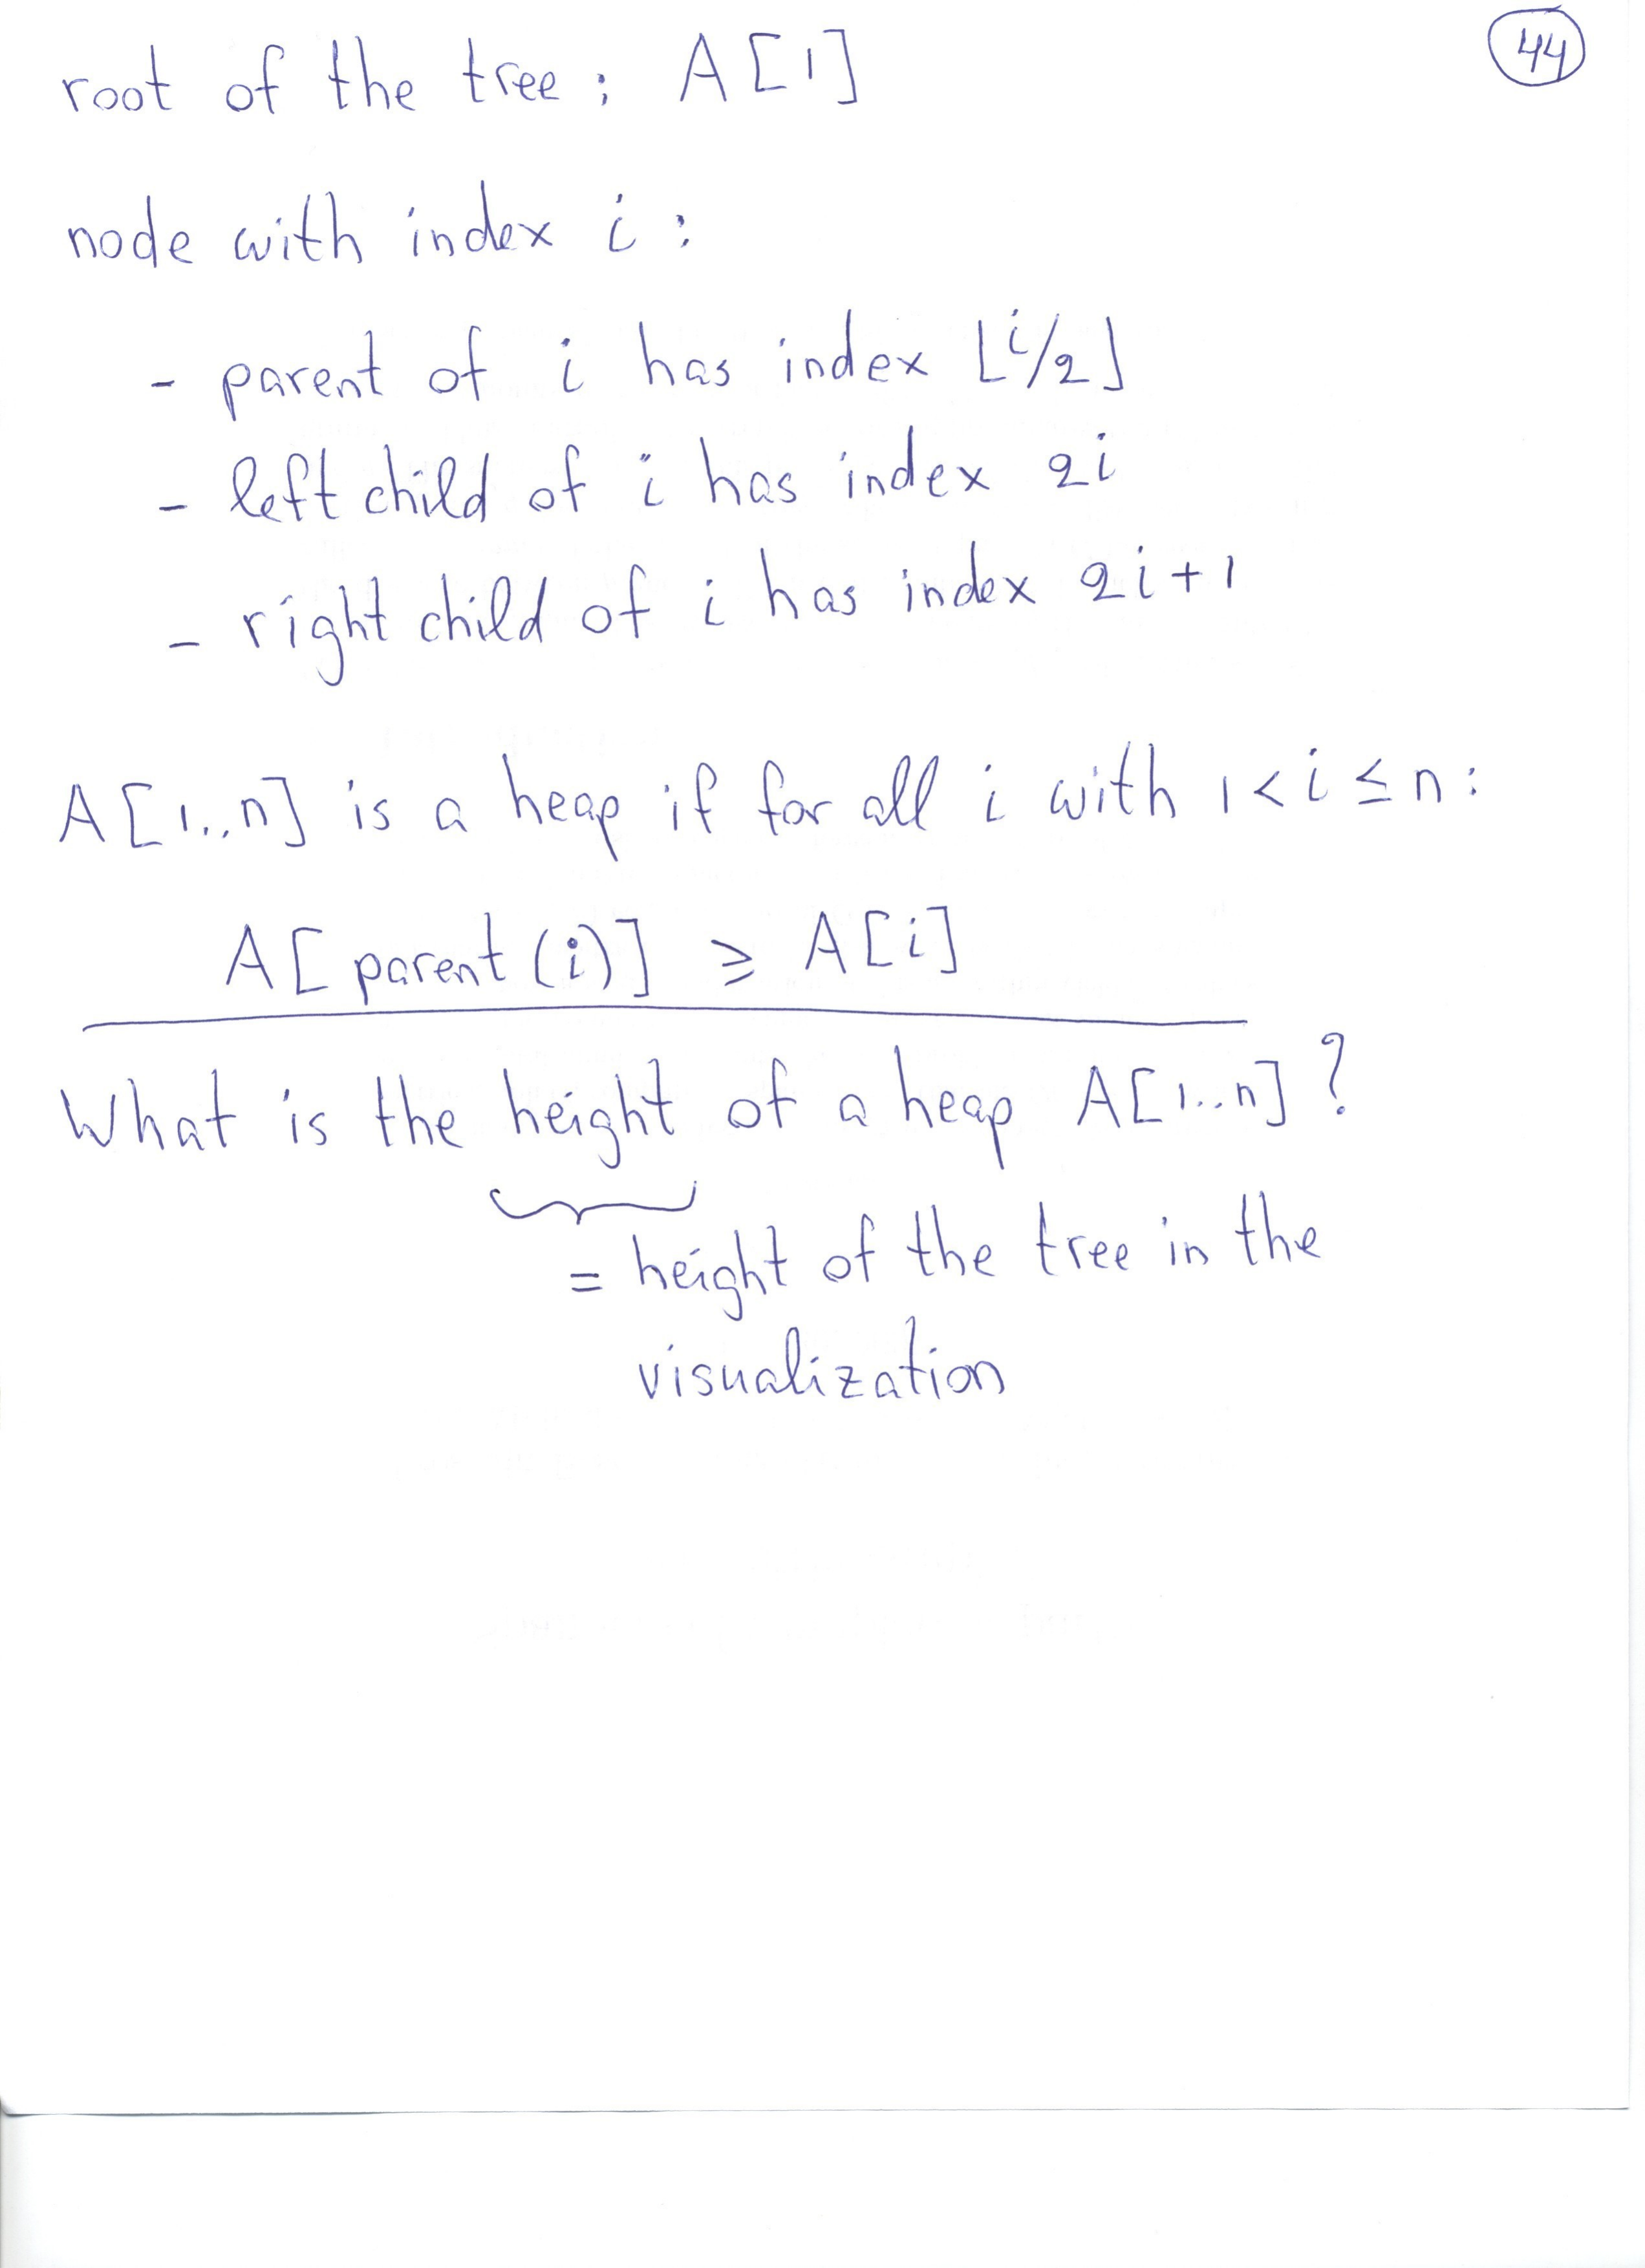 44
root of the tree: A[1]
node with index i:
- parent of i has index ⌊i/2⌋
- left child of i has index 2i
- right child of i has index 2i+1
A[1..n] is a heap if for all i with 1<i≤n:
A[parent(i)] ≥ A[i]
What is the height of a heap A[1..n]?
= height of the tree in the
visualization